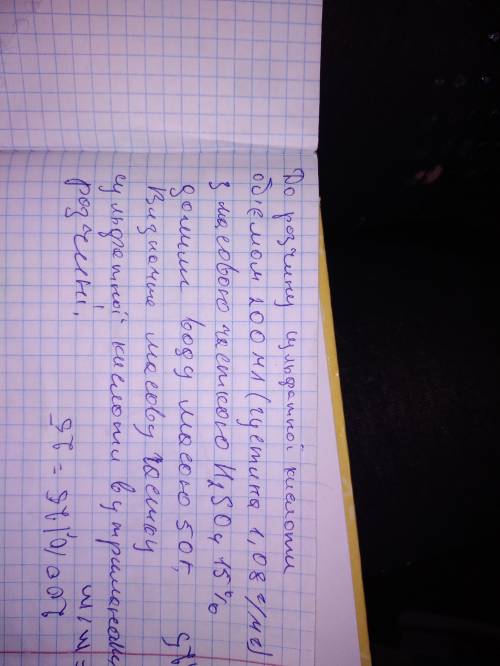 До розчину сульфатної кислоти
об'ємом 200 мл (густина 1,08 г/мл)
з масовою часткою H₂SO₄ 15%
долили воду масою 50г,
Визначте масову частку
сульфатної кислоти в утриманому
розчині.
m =
200·0,15 =